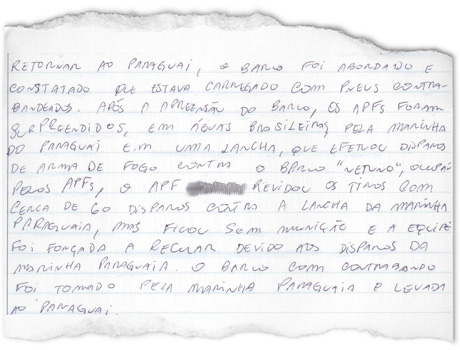 RETORNAR AO PARAGUAI, O BARCO FOI ABORDADO E
CONSTATADO QUE ESTAVA CARREGADO COM PNEUS CONTRA-
BANDEADOS. APÓS A APREENSÃO DO BARCO, OS APFS FORAM
SURPREENDIDOS, EM ÁGUAS BRASILEIRAS, PELA MARINHA
DO PARAGUAI EM UMA LANCHA, QUE EFETUOU DISPAROS
DE ARMA DE FOGO CONTRA O BARCO "NETUNO", OCUPADO
PELOS APFS, O APF REVIDOU OS TIROS COM
CERCA DE 60 DISPAROS CONTRA A LANCHA DA MARINHA
PARAGUAIA, MAS FICOU SEM MUNIÇÃO E A EQUIPE
FOI FORÇADA A RECUAR DEVIDO AOS DISPAROS DA
MARINHA PARAGUAIA. O BARCO COM CONTRABANDO
FOI TOMADO PELA MARINHA PARAGUAIA E LEVADA
AO PARAGUAI.